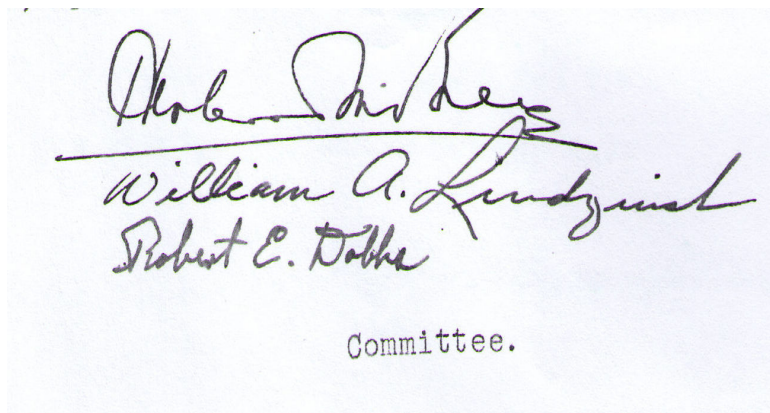 William A. Lundquist
Robert E. Dobbs
Committee.